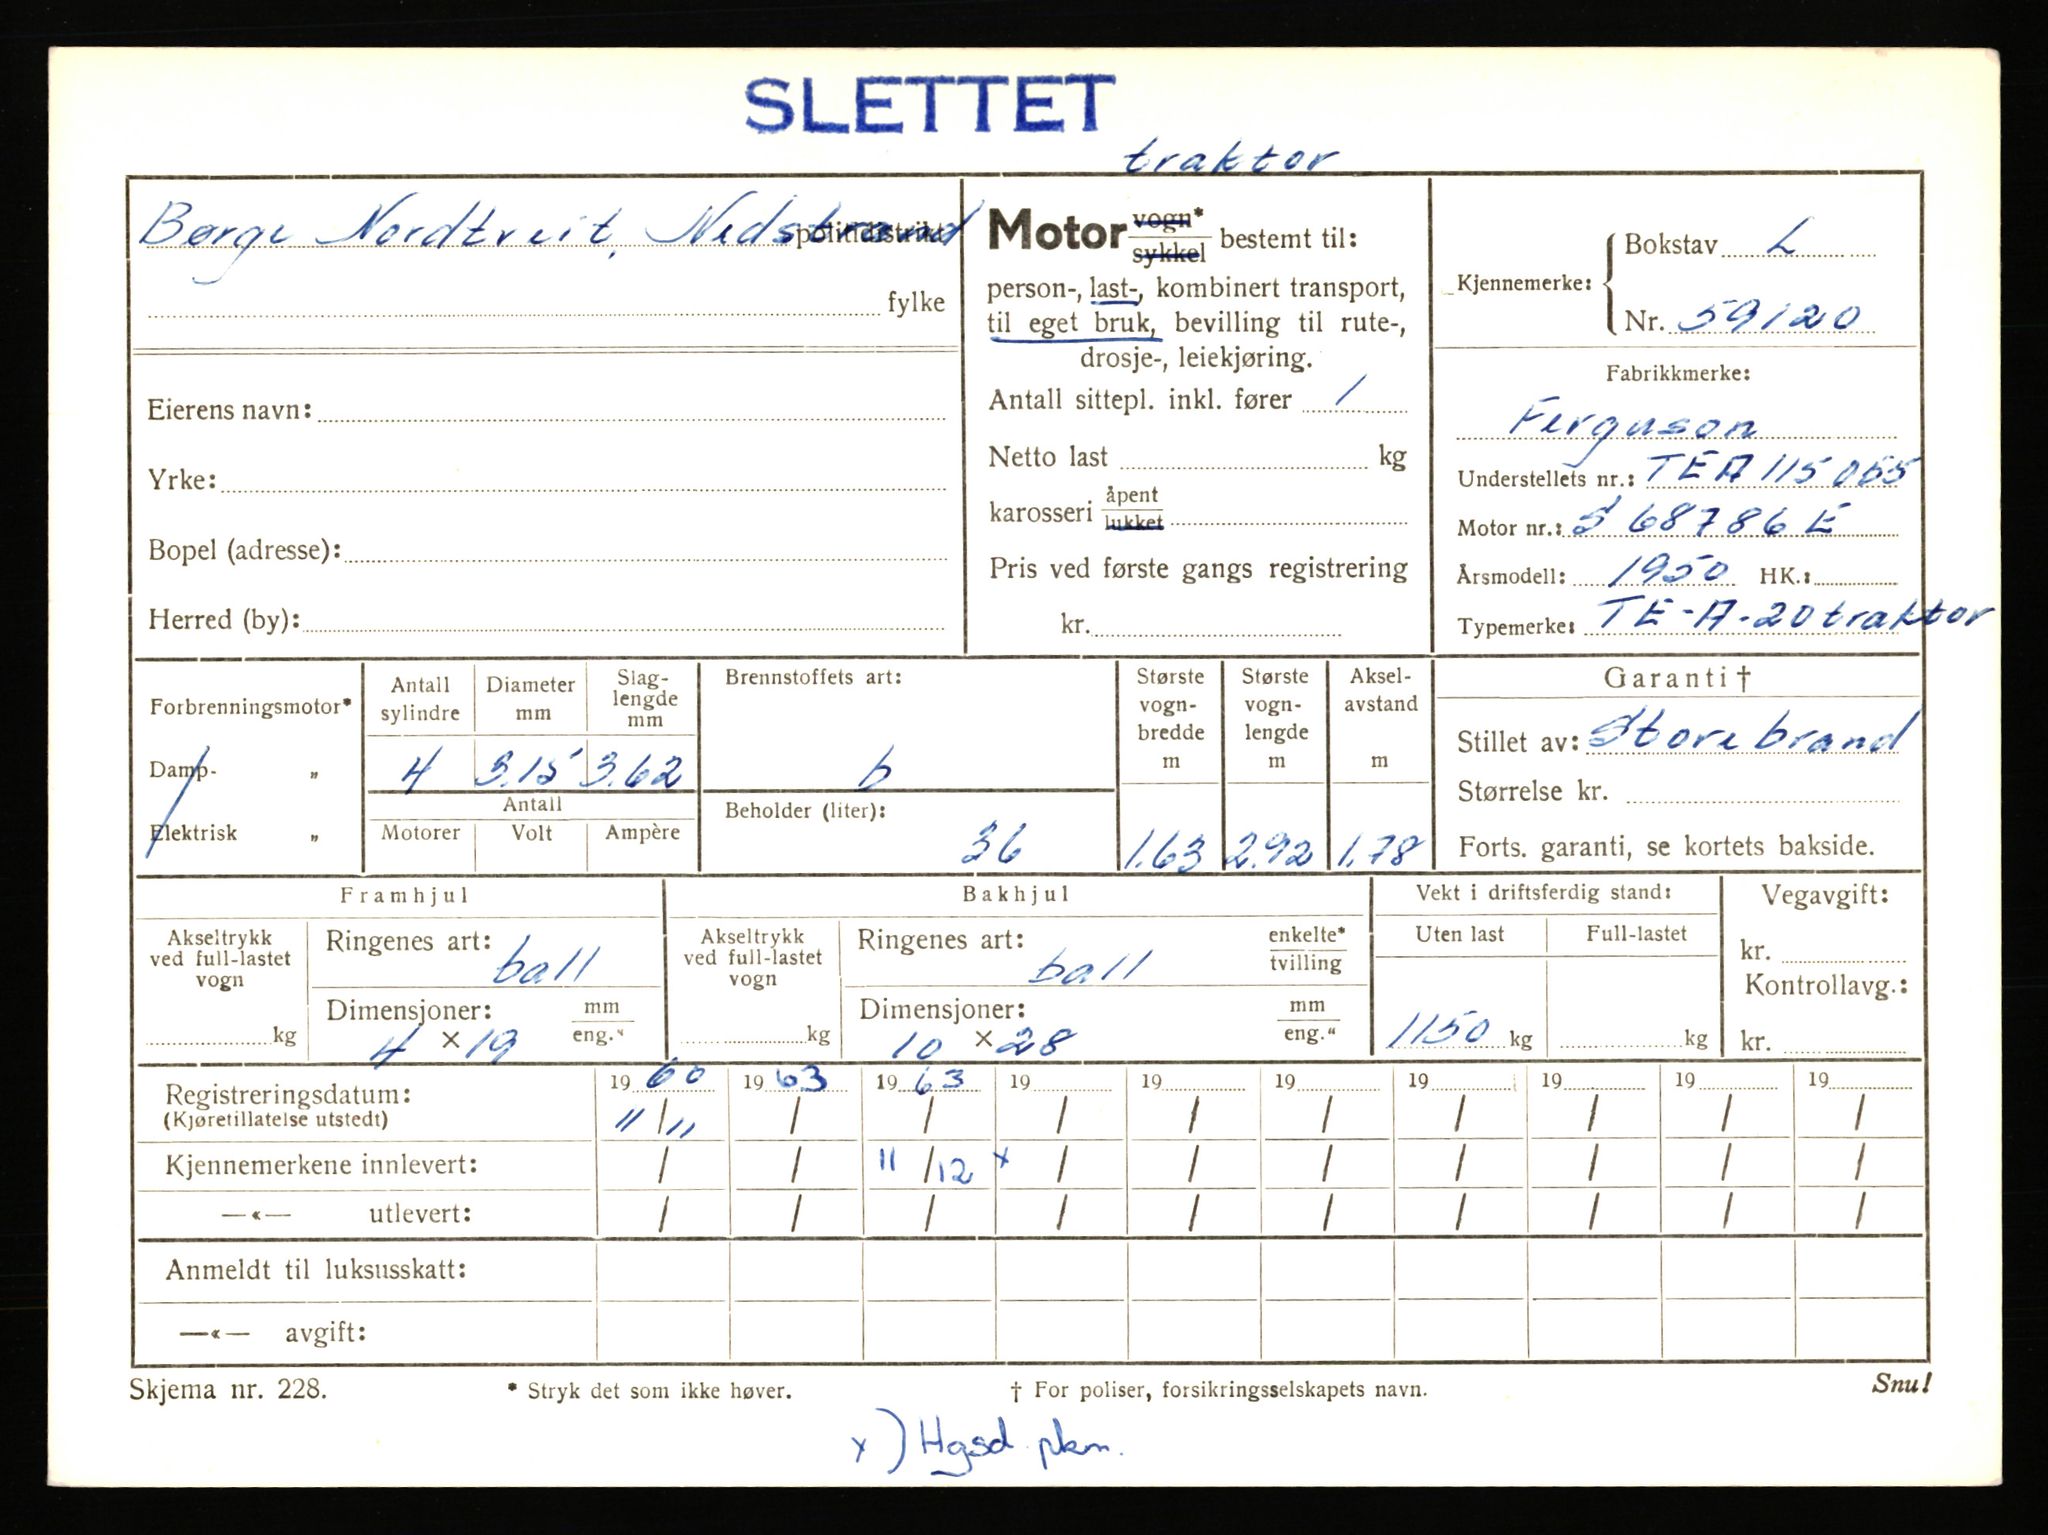 SLETTET
traktor
Børge Nordtveit, Nedstrand politidistrikt
fylke
Eierens navn:
Yrke:
Bopel (adresse):
Herred (by):
Motor vogn* sykkel bestemt til:
person-, last-, kombinert transport,
til eget bruk, bevilling til rute-,
drosje-, leiekjøring.
Antall sittepl. inkl. fører 1
Netto last kg
karosseri åpent lukket
Pris ved første gangs registrering
kr.
Kjennemerke: Bokstav L
Nr. 59120
Fabrikkmerke:
Ferguson
Understellets nr.: TEA 115055
Motor nr.: S 68786 E
Årsmodell: 1950 HK.:
Typemerke: TE-A-20 traktor
Forbrenningsmotor*
Damp- „
Elektrisk „
Antall sylindre Diameter mm Slag-lengde mm
4 3.15 3.62
Antall
Motorer Volt Ampère
Brennstoffets art:
b
Beholder (liter):
36
Største vogn-bredde m
1.63
Største vogn-lengde m
2.92
Aksel-avstand m
1.78
Garanti †
Stillet av: Storebrand
Størrelse kr.
Forts. garanti, se kortets bakside.
Framhjul
Akseltrykk ved full-lastet vogn
kg
Ringenes art: ball
Dimensjoner: mm eng."
4 × 19
Bakhjul
Akseltrykk ved full-lastet vogn
kg
Ringenes art: ball enkelte* tvilling
Dimensjoner: mm eng."
10 × 28
Vekt i driftsferdig stand:
Uten last Full-lastet
1150 kg kg
Vegavgift:
kr.
Kontrollavg.:
kr.
Registreringsdatum: 19 60 19 63 19 63 19 19 19 19 19 19 19
(Kjøretillatelse utstedt) 11/11 / / / / / / / / /
Kjennemerkene innlevert: / / 11/12 x / / / / / / /
—«— utlevert: / / / / / / / / / /
Anmeldt til luksusskatt:
—«— avgift:
Skjema nr. 228. * Stryk det som ikke høver. † For poliser, forsikringsselskapets navn. Snu!
x) Hgsd pkm.